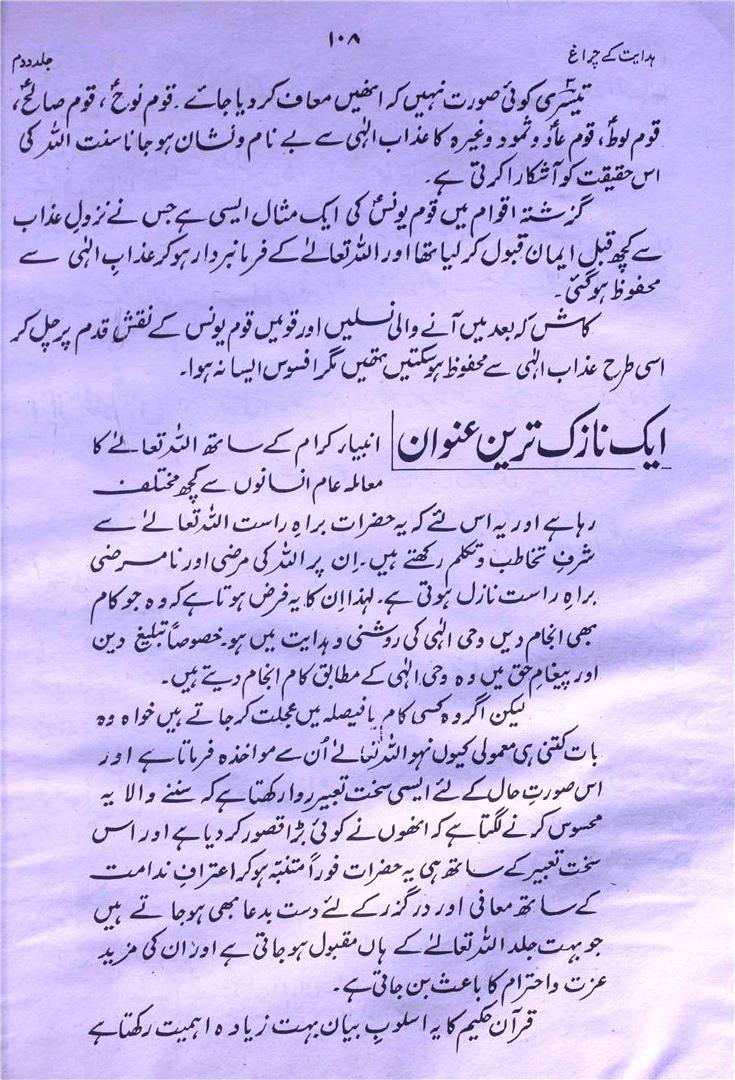 ہدایت کے چراغ ۱۰۸ جلد دوم
تیسری کوئی صورت نہیں کہ انھیں معاف کر دیا جائے۔ قوم نوحؑ، قوم صالحؑ،
قوم لوطؑ، قوم عاد و ثمود وغیرہ کا عذاب الٰہی سے بے نام و نشان ہو جانا سنت اللہ کی
اس حقیقت کو آشکارا کرتی ہے۔
گزشتہ اقوام میں قوم یونسؑ کی ایک مثال ایسی ہے جس نے نزولِ عذاب
سے کچھ قبل ایمان قبول کر لیا تھا اور اللہ تعالےٰ کے فرمانبردار ہو کر عذابِ الٰہی سے
محفوظ ہو گئی۔
کاش کہ بعد میں آنے والی نسلیں اور قومیں قوم یونس کے نقشِ قدم پر چل کر
اسی طرح عذاب الٰہی سے محفوظ ہو سکتیں تھیں مگر افسوس ایسا نہ ہوا۔
ایک نازک ترین عنوان
انبیاء کرام کے ساتھ اللہ تعالےٰ کا
معاملہ عام انسانوں سے کچھ مختلف
رہا ہے اور یہ اس لئے کہ یہ حضرات براہِ راست اللہ تعالےٰ سے
شرفِ تخاطب و تکلم رکھتے ہیں۔ اِن پر اللہ کی مرضی اور نامرضی
براہِ راست نازل ہوتی ہے۔ لہٰذا اِن کا یہ فرض ہوتا ہے کہ وہ جو کام
بھی انجام دیں وحی الٰہی کی روشنی و ہدایت میں ہو۔ خصوصاً تبلیغ دین
اور پیغامِ حق میں وہ وحی الٰہی کے مطابق کام انجام دیتے ہیں۔
لیکن اگر وہ کسی کام یا فیصلہ میں عجلت کر جاتے ہیں خواہ وہ
بات کتنی ہی معمولی کیوں نہو اللہ تعالےٰ اُن سے مواخذہ فرماتا ہے اور
اس صورتِ حال کے لئے ایسی سخت تعبیر روا رکھتا ہے کہ سننے والا یہ
محسوس کرنے لگتا ہے کہ انھوں نے کوئی بڑا قصور کر دیا ہے اور اس
سخت تعبیر کے ساتھ ہی یہ حضرات فوراً متنبّہ ہو کر اعترافِ ندامت
کے ساتھ معافی اور درگزر کے لئے دست بدعا بھی ہو جاتے ہیں
جو بہت جلد اللہ تعالےٰ کے ہاں مقبول ہو جاتی ہے اور ان کی مزید
عزت و احترام کا باعث بن جاتی ہے۔
قرآن حکیم کا یہ اسلوبِ بیان بہت زیادہ اہمیت رکھتا ہے